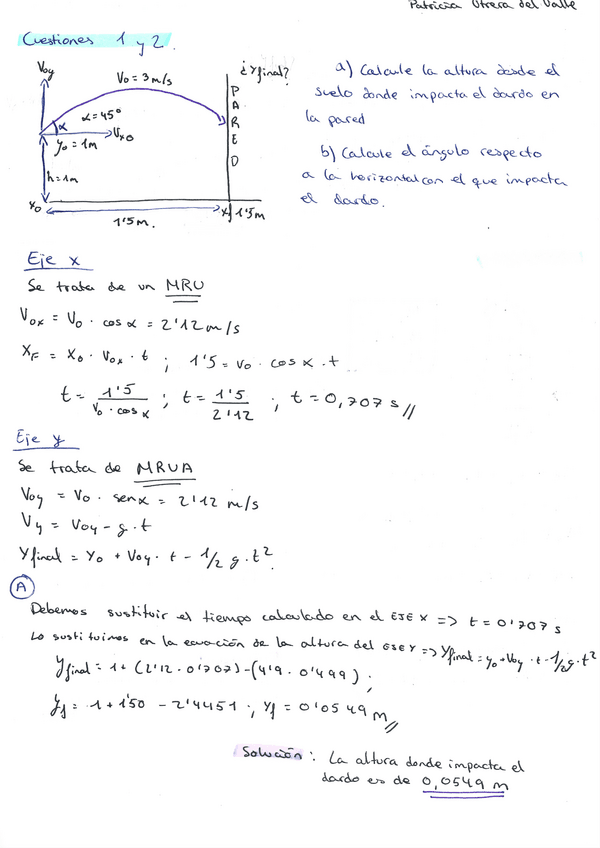 Patricia Utrera del Valle
Cuestiones 1 y 2.
Voy
Vo = 3 m/s
¿Yfinal?
PARED
α = 45º
α
Vxo
yo = 1m
h = 1m
Xo
1'5 m.
Xf 1'5 m
a) Calcule la altura desde el
suelo donde impacta el dardo en
la pared
b) Calcule el ángulo respecto
a la horizontal con el que impacta
el dardo.
Eje x
Se trata de un MRU
Vox = Vo · cos α = 2'12 m/s
XF = Xo · Vox · t ; 1'5 = Vo · cos α · t
t = 1'5 / Vo · cos α ; t = 1'5 / 2'12 ; t = 0,707 s //
Eje y
Se trata de MRUA
Voy = Vo · sen α = 2'12 m/s
Vy = Voy - g · t
Yfinal = Yo + Voy · t - 1/2 g · t²
A
Debemos sustituir el tiempo calculado en el EJE X => t = 0'707 s
Lo sustituimos en la ecuación de la altura del EJE Y => Yfinal = yo + Voy · t - 1/2 g · t²
Yfinal = 1 + (2'12 · 0'707) - (4'9 · 0'499) ;
yf = 1 + 1'50 - 2'4451 ; yf = 0'0549 m //
Solución : La altura donde impacta el
dardo es de 0,0549 m